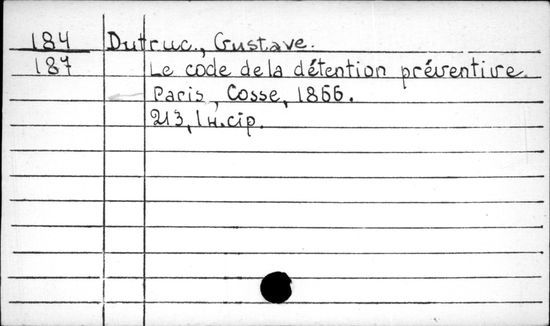 184 Dutruc., Gustave.
187 Le code de la détention préventive.
Paris, Cosse, 1866.
213, 1 н.cip.